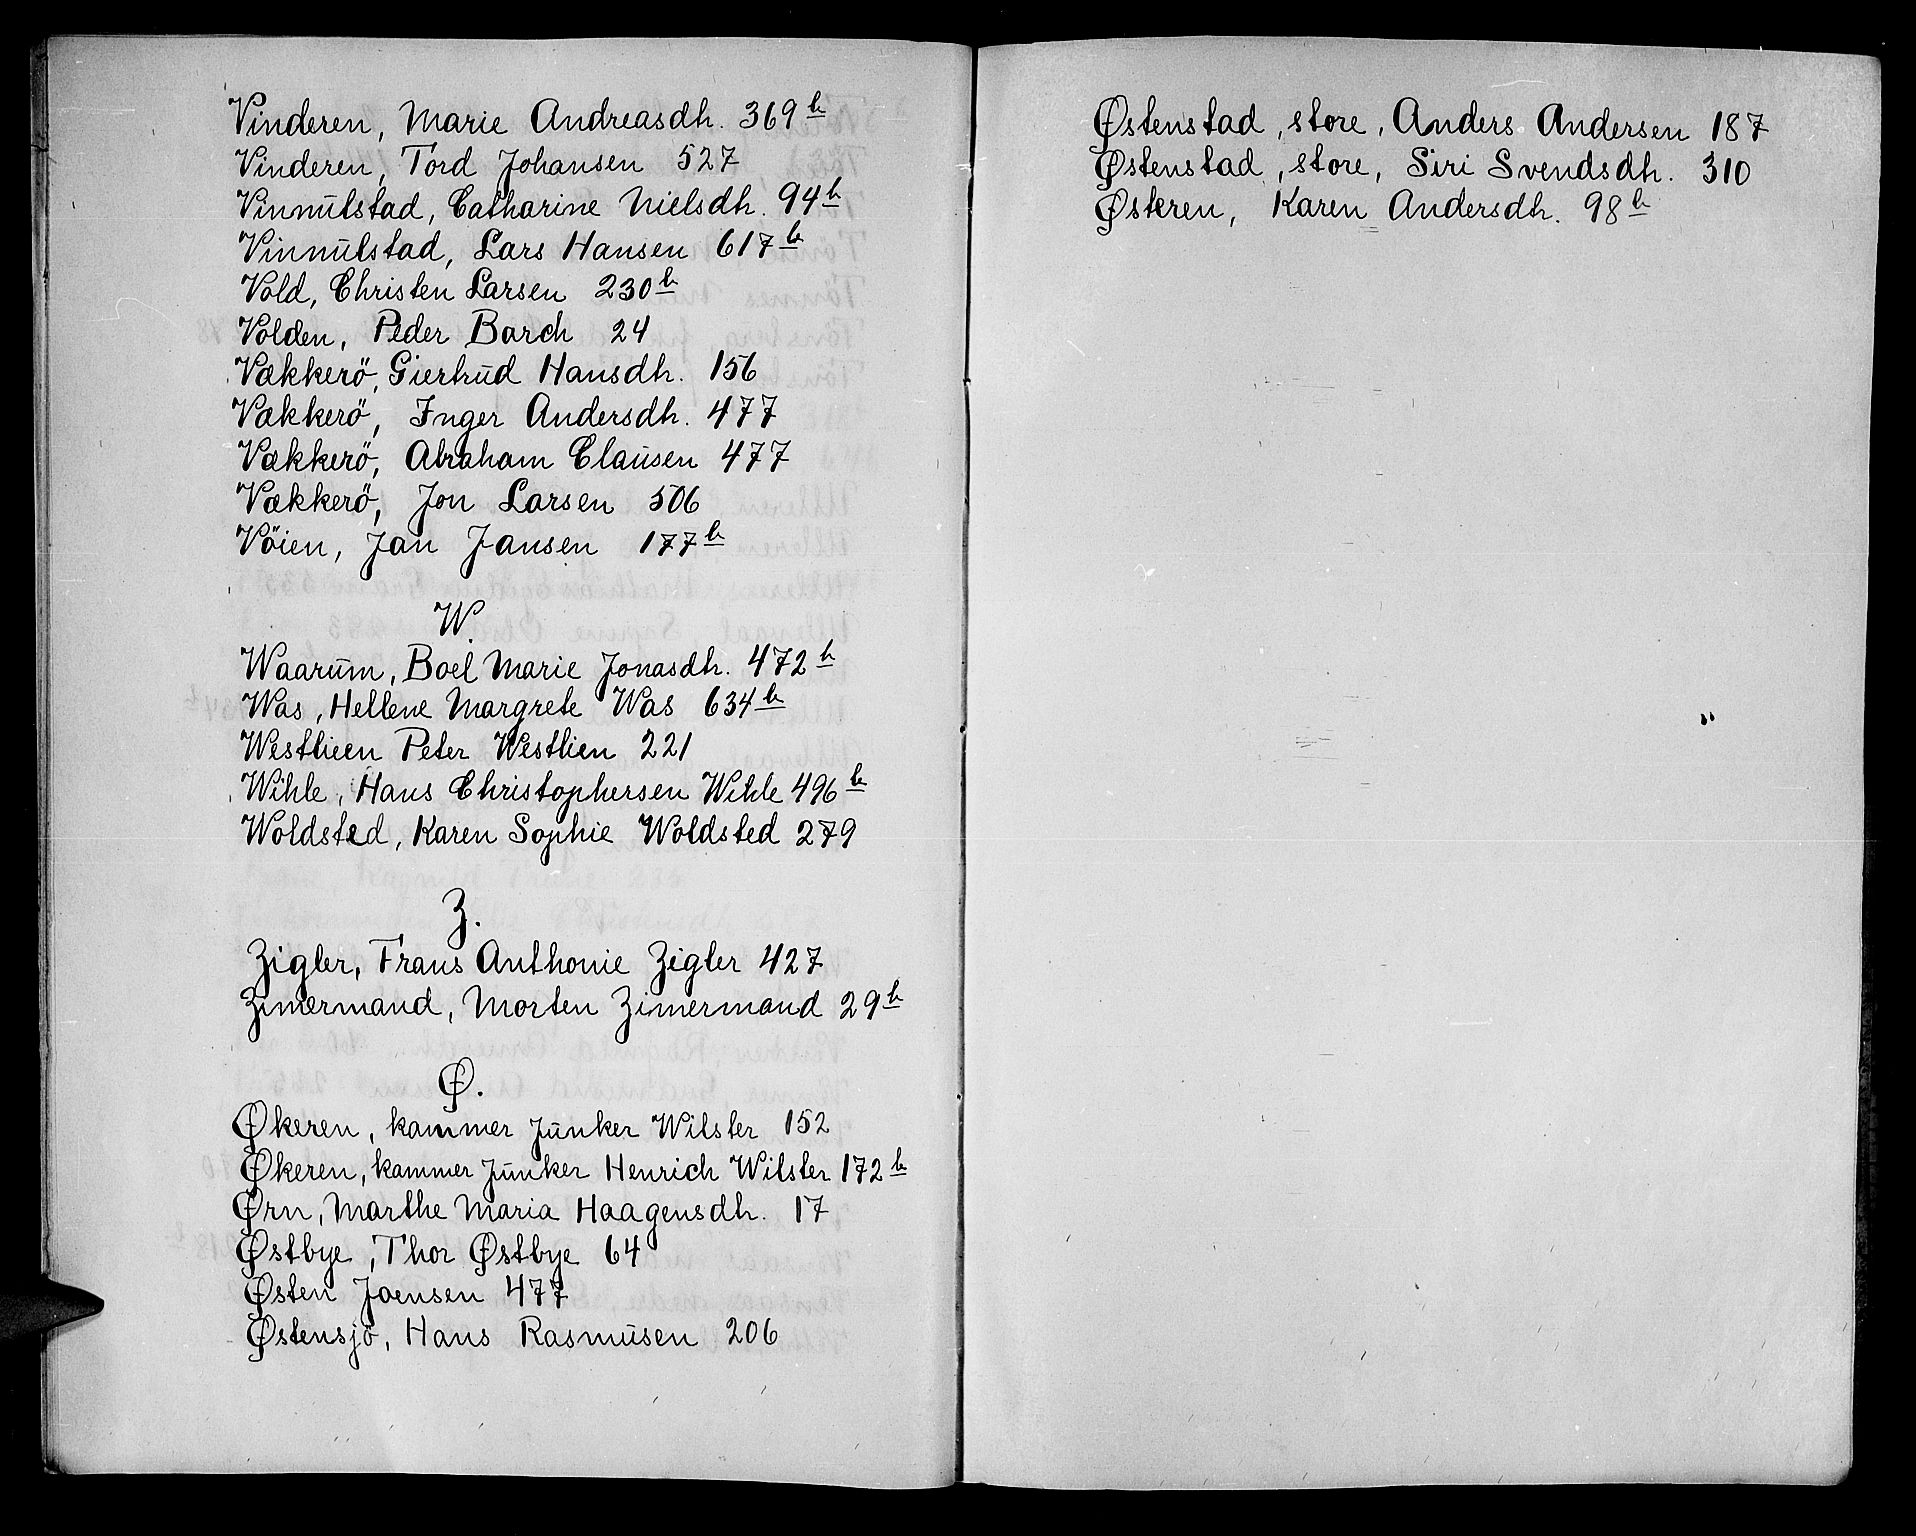 Vinderen, Marie Andreasdh. 369b
Vinderen, Tord Johansen 527
Vinnulstad, Catharine Nielsdh. 94b
Vinnulstad, Lars Hansen 617b
Vold, Christen Larsen 230b
Volden, Peder Borch 24
Vækkerö, Giertrud Hansdh. 156
Vækkerö, Inger Andersdh. 477
Vækkerö, Abraham Clausen 477
Vækkerö, Jon Larsen 506
Vöien, Jan Jansen 177b
W.
Waarum, Boel Marie Jonasdh. 472b
Was, Hellene Margrete Was 634b
Westlieen Peter Westlien 221
Wihle, Hans Christophersen Wihle 496b
Woldsted, Karen Sophie Woldsted 279
Z.
Zigler, Frans Anthonie Zigler 427
Zimermand, Morten Zimermand 29b
Ø.
Økeren, kammer Junker Wilster 152
Økeren, kammer Junker Henrich Wilster 172b
Ørn, Marthe Maria Haagensdh. 17
Østbye, Thor Østbye 64
Østen Joensen 477
Østensjö, Hans Rasmusen 206
Østenstad, store, Anders Andersen 187
Østenstad, store, Siri Svendsdh. 310
Østeren, Karen Andersdh. 98b